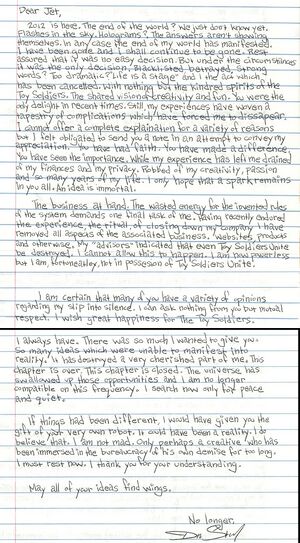 Dear Jet,
2012 is here. The end of the world? We just don't know yet.
Flashes in the sky. Holograms? The answers aren't showing
themselves. In any case the end of my world has manifested.
I have been gone and I shall continue to be gone. Rest
assured that it was no easy decision. But under the circumstances
it was the only decision. Blacklisted, betrayed. Strong
words? Too dramatic? Life is a stage and I the act which
has been cancelled. With nothing but the kindred spirits of the
Toy Soldiers. The shared vision of creativity and fun. You were the
only delight in recent times. Still, my experiences have woven a
tapestry of complications which have forced me to dissapear.
I cannot offer a complete explanation for a variety of reasons
but I felt obligated to send you a text in an attempt to convey my
appreciation. You have had faith. You have made a difference.
You have seen the importance. While my experience has left me drained
of my finances and my privacy. Robbed of my creativity, passion
and so many years of my life. I only hope that a spark remains
in you all. An idea is immortal.
The business at hand. The wasted energy for the invented rules
of the system demands one final task of me. Having recently endured
the experience, the ritual, of closing down my company I have
removed all aspects of the associated business, websites, products
and otherwise. My "advisors" indicated that even Toy Soldiers Unite
be destroyed. I cannot allow this to happen. I am now powerless
but I am, fortuneatley, not in possesion of Toy Soldiers Unite.
I am certain that many of you have a variety of opinions
regarding my slip into silence. I can ask nothing from you but mutual
respect. I wish great happiness for the Toy Soldiers.
I always have. There was so much I wanted to give you.
So many ideas which were unable to manifest into
reality. It has destroyed a very cherished part of me. This
chapter is over. This chapter is closed. The universe has
swallowed up those opportunities and I am no longer
compatible on this frequency. I search now only for peace
and quiet.
If things had been different, I would have given you the
gift of your very own robot. It could have been a reality. I do
believe that. I am not mad. Only perhaps a creative who has
been immersed in the bureaucracy of his own demise for too long.
I must rest now. I thank you for your understanding.
May all of your ideas find wings.
No longer,